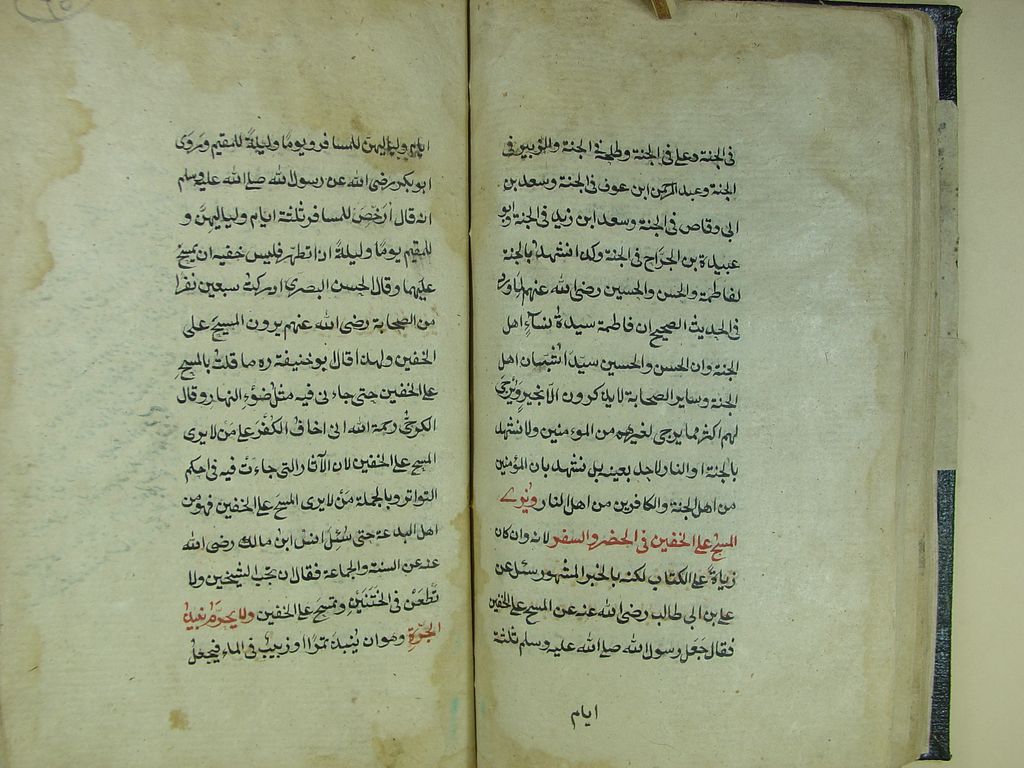 في الجنة وعلي في الجنة وطلحة في الجنة والزبير في
الجنة وعبد الرحمن ابن عوف في الجنة وسعد بن
ابي وقاص في الجنة وسعد ابن زيد في الجنة وابو
عبيدة بن الجراح في الجنة وكذا نشهد بالجنة
لفاطمة والحسن والحسين رضى الله عنهم لما ورد
في الحديث الصحيح ان فاطمة سيدة نسآء اهل
الجنة وان الحسن والحسين سيدا شبان اهل
الجنة وساير الصحابة لا يذكرون الا بخير ويرجى
لهم اكثر مما يرجى لغيرهم من الموءمنين ولا نشهد
بالجنة او النار لاحد بعينه بل نشهد بان المؤمنين
من اهل الجنة والكافرين من اهل النار ويُرى
المسح على الخفين في الحضر والسفر لانه وان كان
زيادة على الكتاب لكنه بالخبر المشهور سئل عن
علي بن ابي طالب رضى الله عنه عن المسح على الخفين
فقال جَعَل رسول الله صلى الله عليه وسلم ثلثة
ايام
ايام ولياليهن للمسافر ويومًا وليلةً للمقيم وروى
ابو بكر رضى الله عن رسول الله صلى الله عليه وسلم
انه قال اَرْخَصَ للمسافر ثلثة ايام ولياليهنَّ و
للمقيم يومًا وليلةً اذا تطهّر فلبس خفيه ان يمسح
عليهما وقال الحسن البصري ادركتُ سبعين نفرا
من الصحابة رضى الله عنهم يرون المسح على
الخفين ولهذا قال ابو حنيفة ره ما قلتُ بالمسح
على الخفين حتى جاءنى فيه مثل ضوْءِ النهار وقال
الكرخيّ رحمة الله انى اخافُ الكُفْر على مَن لا يرى
المسح على الخفين لان الآثار التي جاءَت فيه في حكم
التواتر وبالجملة مَنْ لا يرى المسح على الخفين فهو من
اهل البدعة حتى سُئل انس ابن مالك رضى الله
عنه عن السنة والجماعة فقال ان تحب الشيخين ولا
تَطْعَنْ في الختَنَيْنِ وتمسح على الخفين ولا يحرّم نبيذ
الجرّةِ وهو ان يُنبذ تمرٌ او زبيبٌ في الماء فيجعلُ